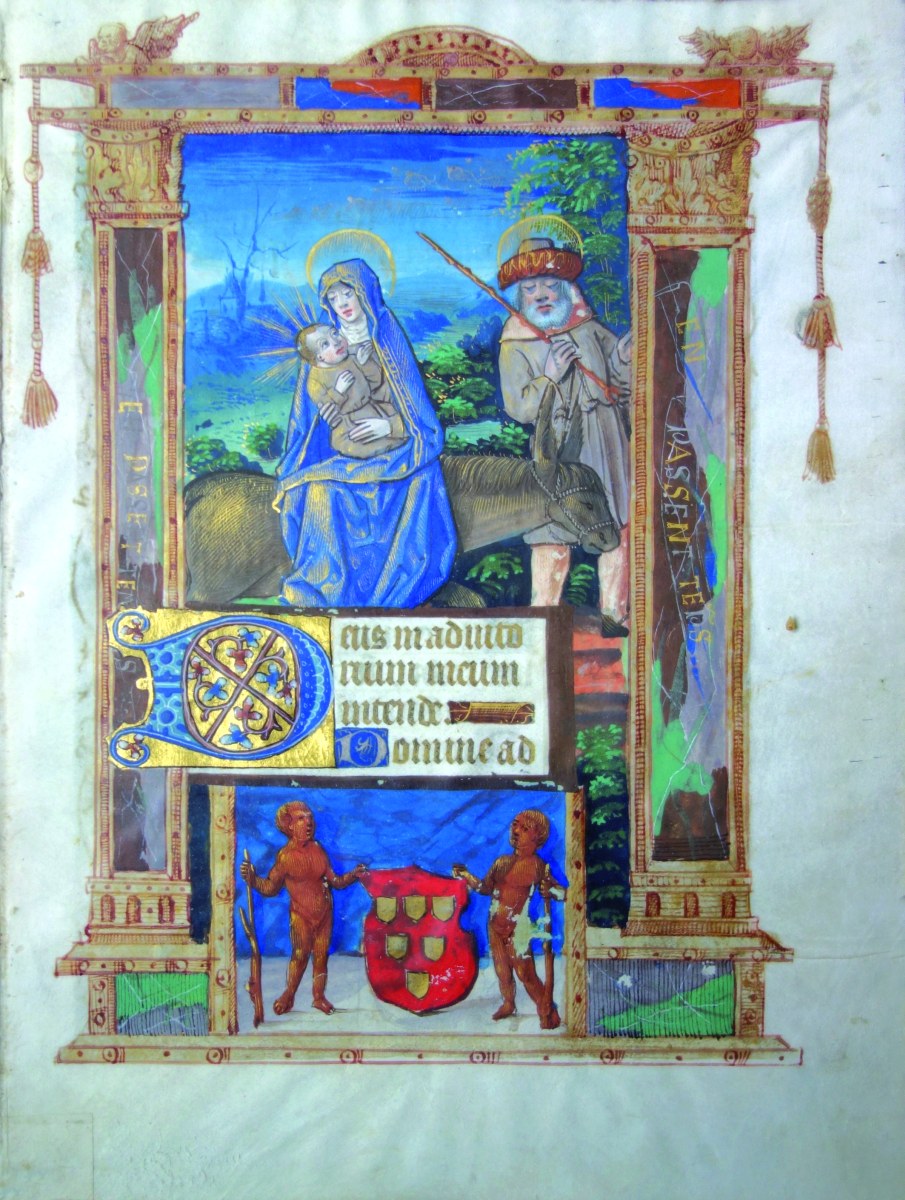 Deus in adiuto
rium meum
intende.
Domine ad
EN PASSENT TEPS